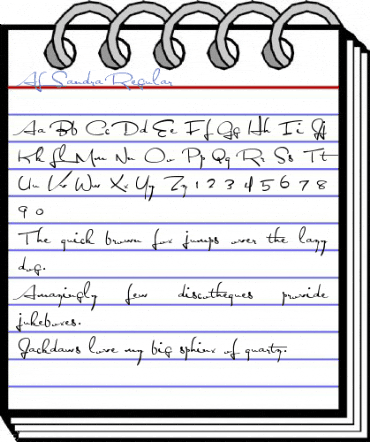 Af Sandra Regular
Aa Bb Cc Dd Ee Ff Gg Hh Ii Jj
Kk Ll Mm Nn Oo Pp Qq Rr Ss Tt
Uu Vv Ww Xx Yy Zz 1 2 3 4 5 6 7 8
9 0
The quick brown fox jumps over the lazy
dog.
Amazingly few discotheques provide
jukeboxes.
Jackdaws love my big sphinx of quartz.